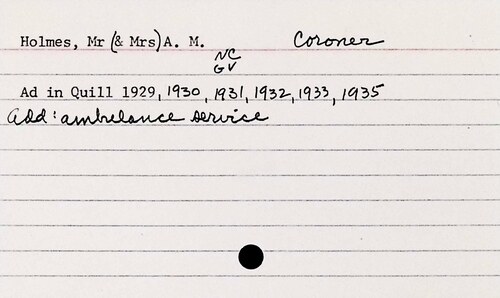 Holmes, Mr (& Mrs) A. M. Coroner
NC
GV
Ad in Quill 1929, 1930, 1931, 1932, 1933, 1935
Add: ambulance service